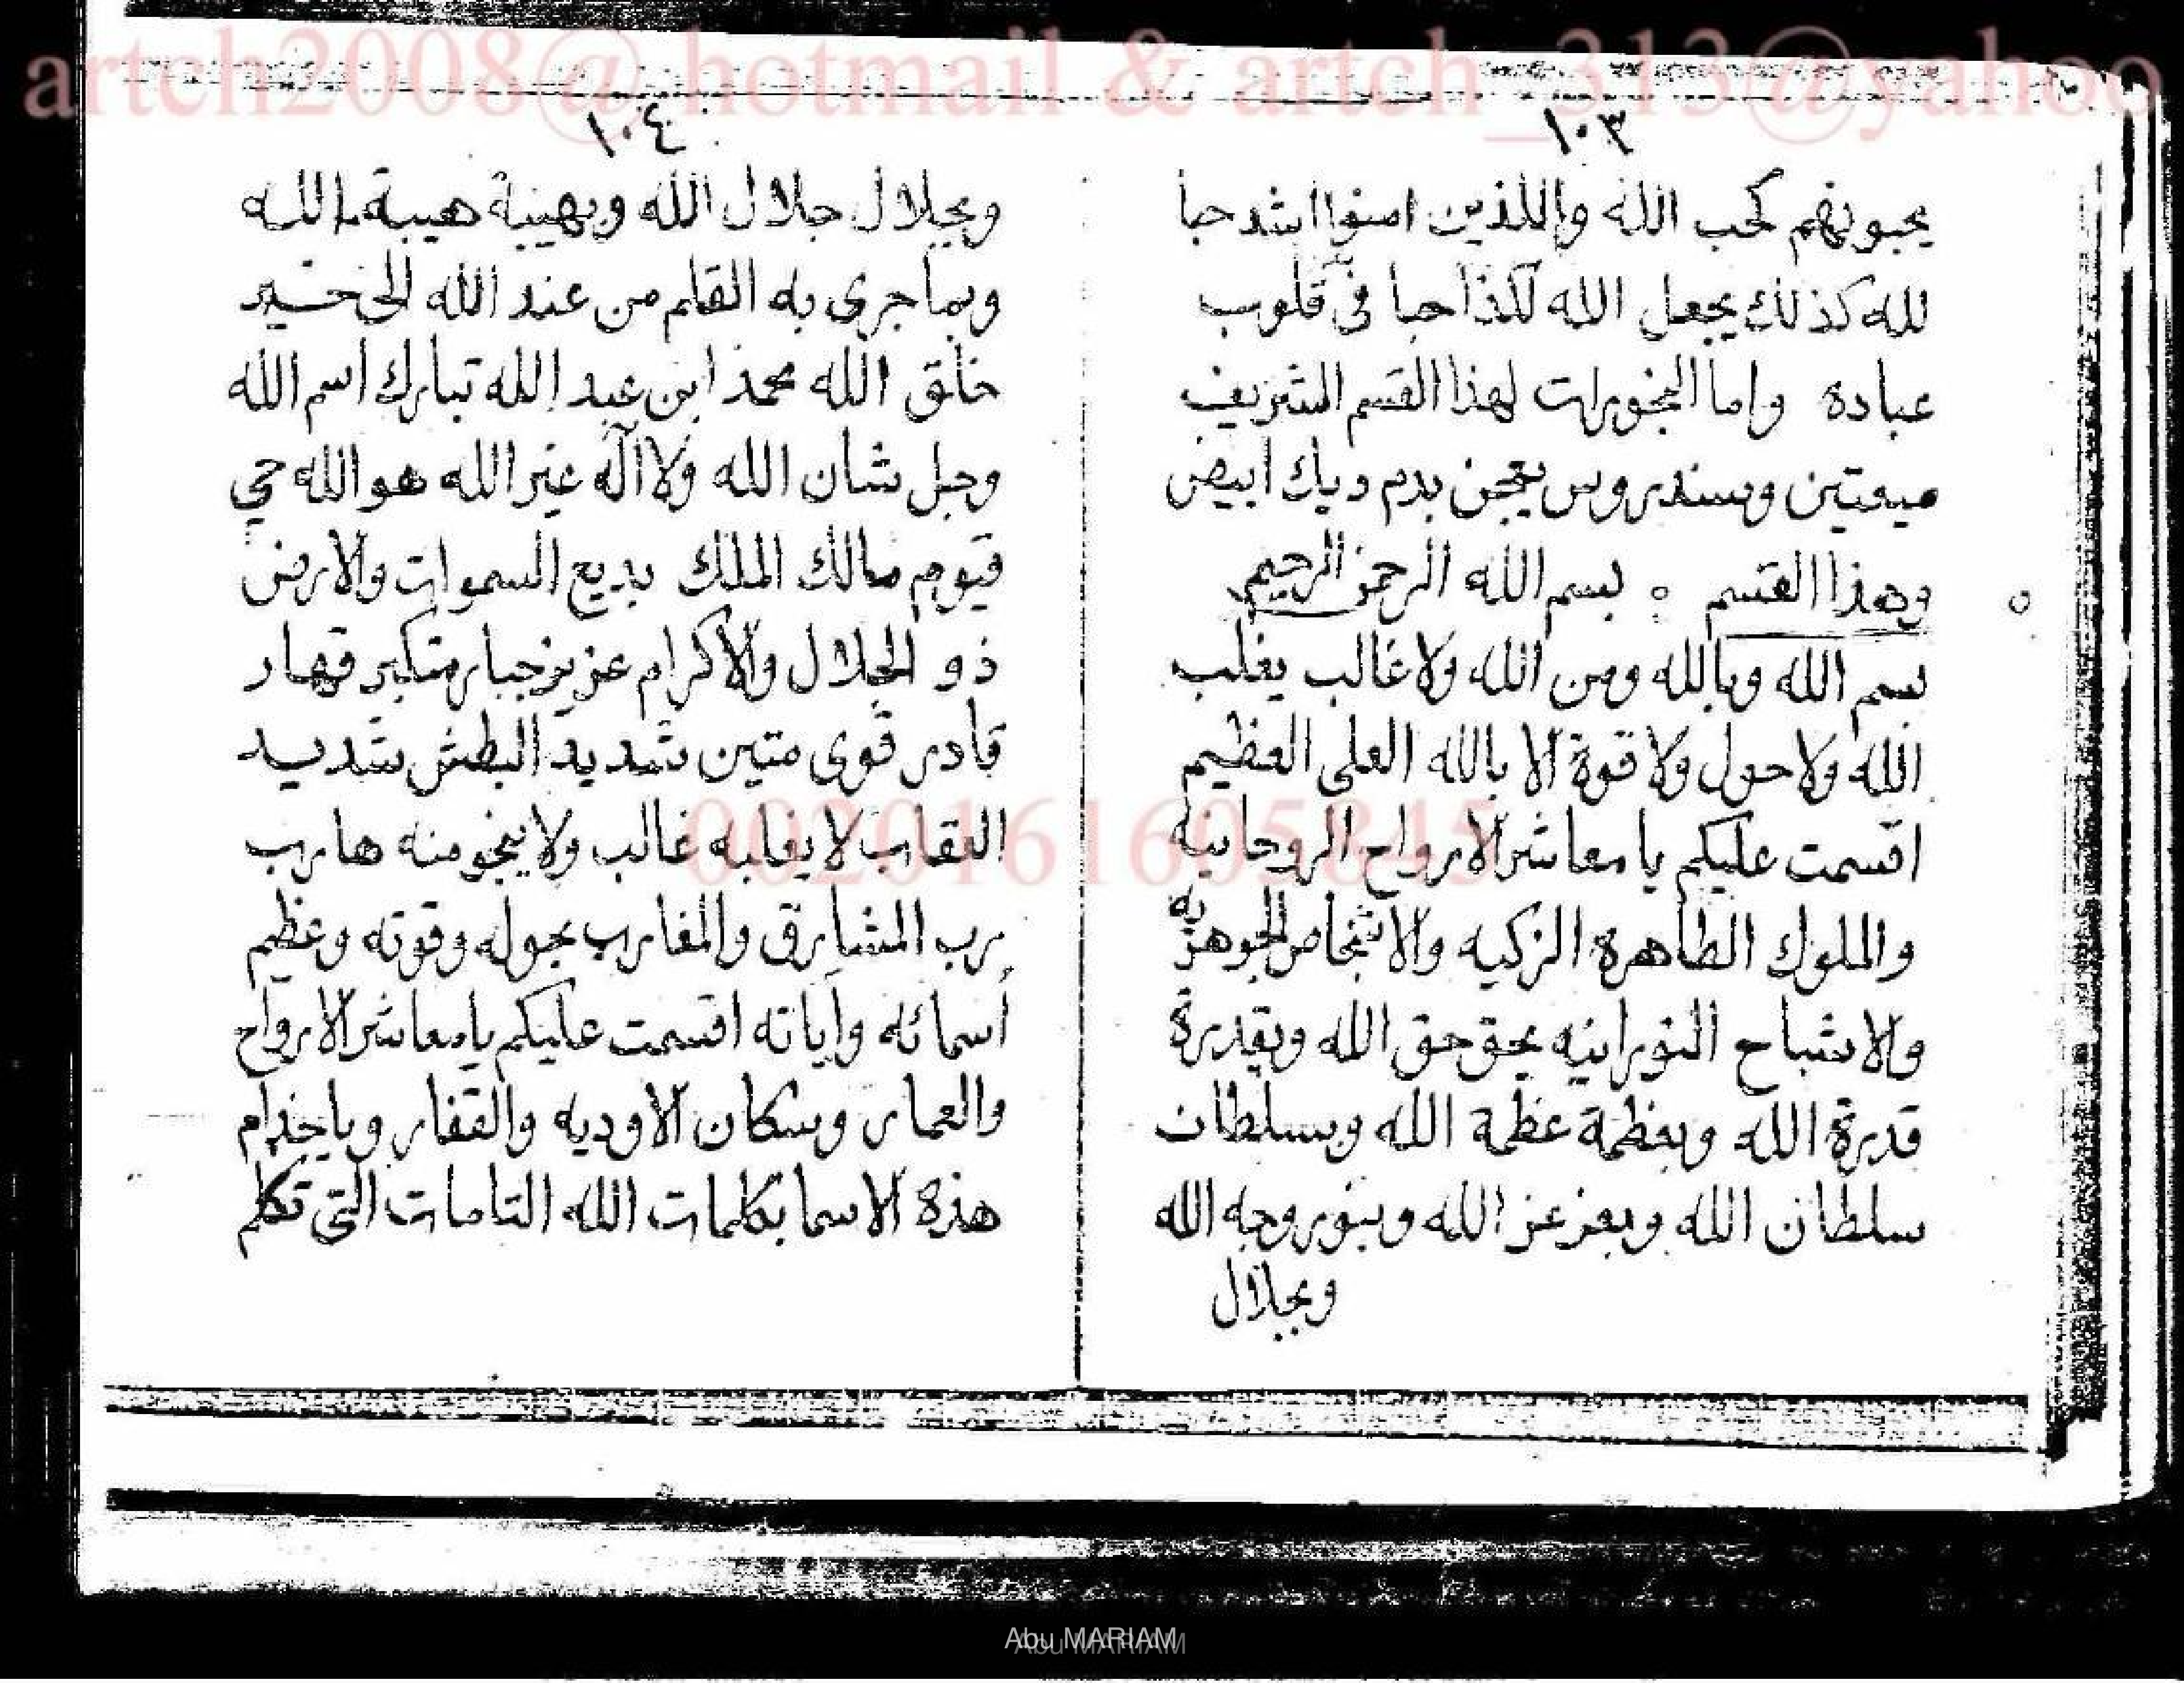 artch2008@hotmail & artch_313@yahoo
١٠٣
يحبونهم كحب الله واللذين امنوا اشد حبا
لله كذلك يجعل الله لكذا حبا في قلوب
عباده واما البخورات لهذا القسم الشريف
ميعتين وسندروس يعجن بدم ديك ابيض
وهذا القسم ٥ بسم الله الرحمن الرحيم
بسم الله وبالله ومن الله ولا غالب يغلب
الله ولا حول ولا قوة الا بالله العلى العظيم
اقسمت عليكم يا معاشر الارواح الروحانية
والملوك الطاهرة الزكيه والاشخاص الجوهريه
والاشباح النورانيه بحق حق الله وبقدرة
قدرة الله وبعظمة عظمة الله وبسلطان
سلطان الله وبعز عز الله وبنور وجه الله
وبجلال
١٠٤
وبجلال جلال الله وبهيبة هيبة الله
وبما جرى به القلم من عند الله الى خير
خلق الله محمد ابن عبد الله تبارك اسم الله
وجل شان الله ولا اله غير الله هو الله حي
قيوم مالك الملك بديع السموات والارض
ذو الجلال والاكرام عزيز جبار متكبر قهار
قادر قوى متين شديد البطش شديد
العقاب لا يغلبه غالب ولا ينجو منه هارب
رب المشارق والمغارب بحوله وقوته وعظيم
أسمائه وآياته اقسمت عليكم يا معاشر الارواح
والعمار وسكان الاوديه والقفار ويا خدام
هذه الاسما بكلمات الله التامات التى تكلم
00201616058​45
Abu MARIAM